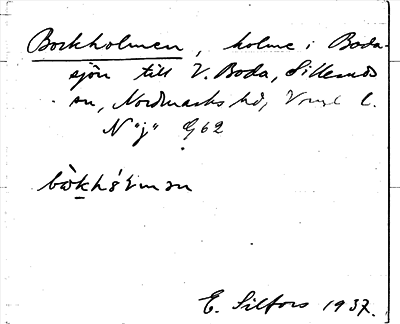 Bockholmen, holme i Boda-
sjön till V. Boda, Sillerud
sn, Nordmarks hd, Vrml l.
N "j" G62
bòkhó́lman
E. Silfors 1937.